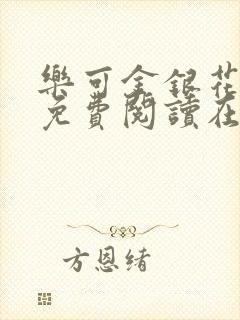 樂可金銀花
免費閱讀在
方恩緒